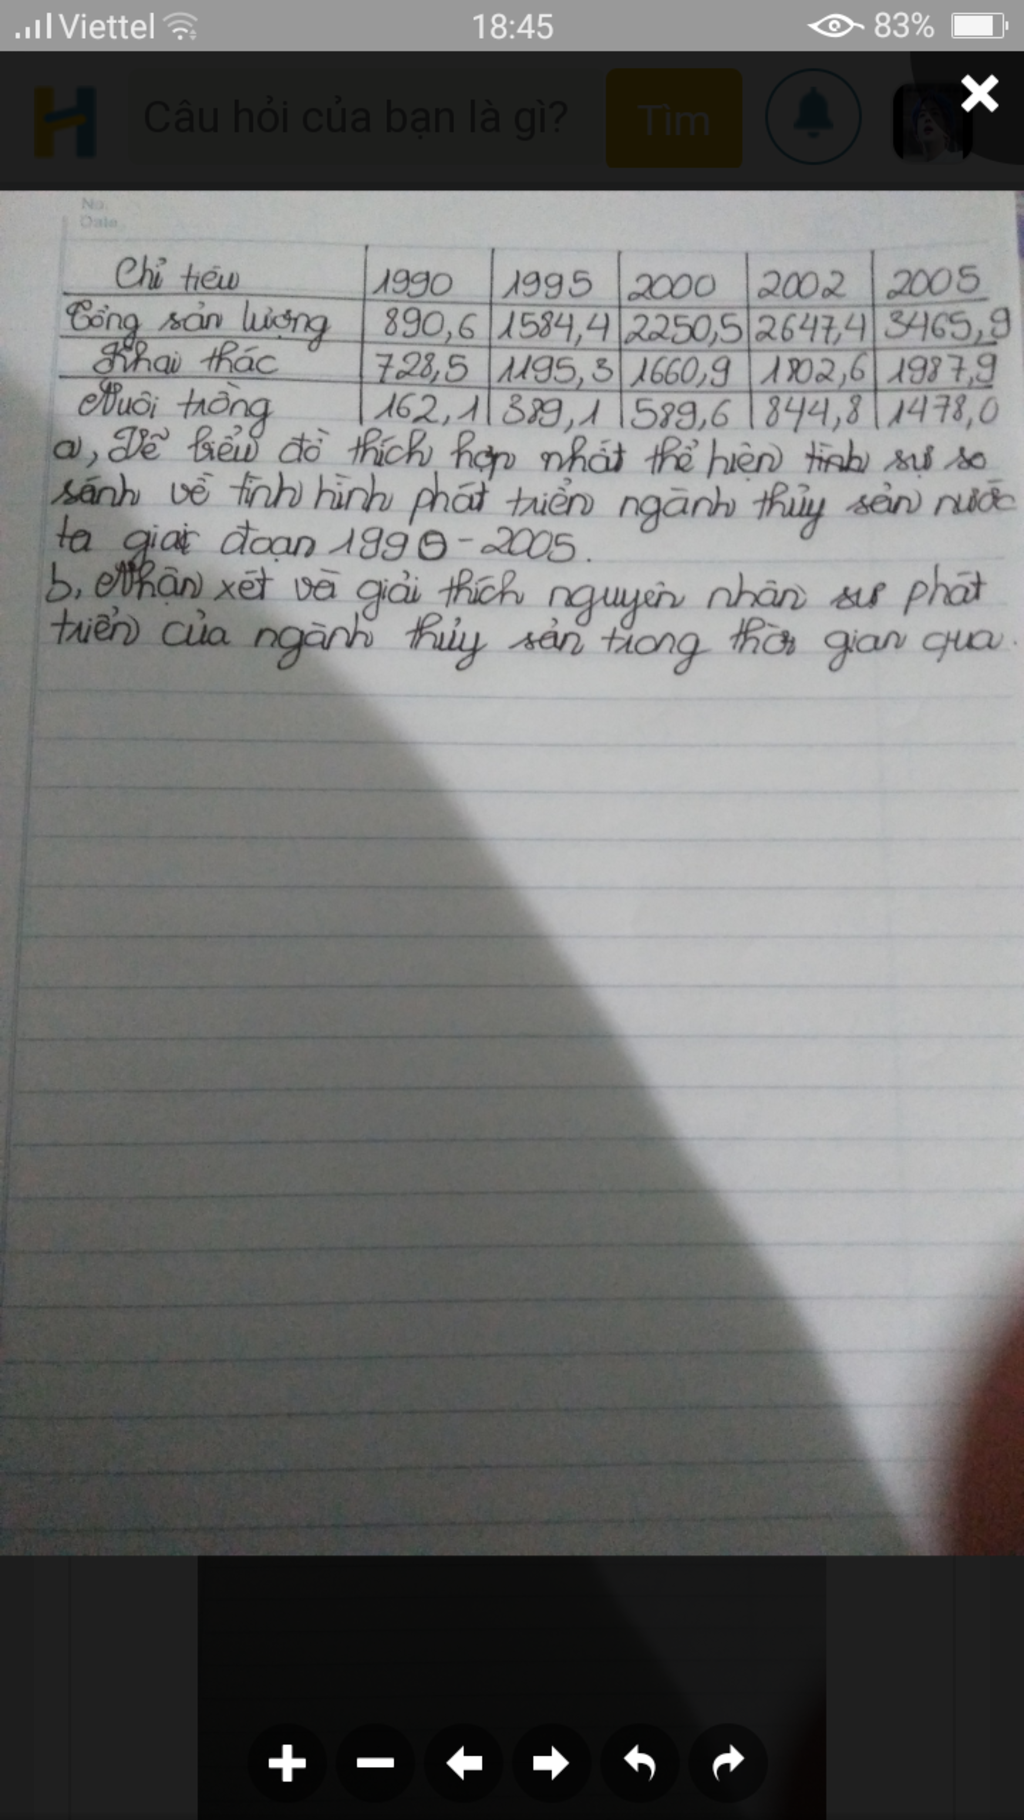 Viettel 18:45 83%
Câu hỏi của bạn là gì? Tìm
No.
Date
Chỉ tiêu 1990 1995 2000 2002 2005
Tổng sản lượng 890,6 1584,4 2250,5 2647,4 3465,9
Khai thác 728,5 1195,3 1660,9 1802,6 1987,9
Nuôi trồng 162,1 389,1 589,6 844,8 1478,0
a, Vẽ biểu đồ thích hợp nhất thể hiện tình sự so
sánh về tình hình phát triển ngành thủy sản nước
ta giai đoạn 1990-2005.
b, Nhận xét và giải thích nguyên nhân sự phát
triển của ngành thủy sản trong thời gian qua.